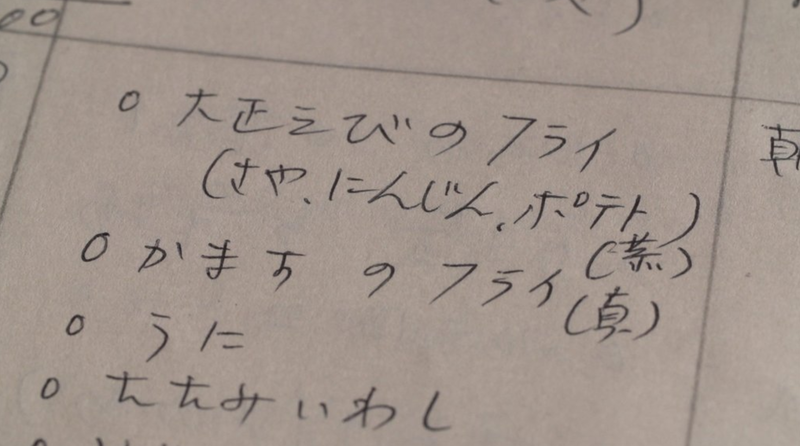 ○ 大正えびのフライ
(さや、にんじん、ポテト)
○ かますのフライ (蒸)
(真)
○ うに
○ たたみいわし
朝